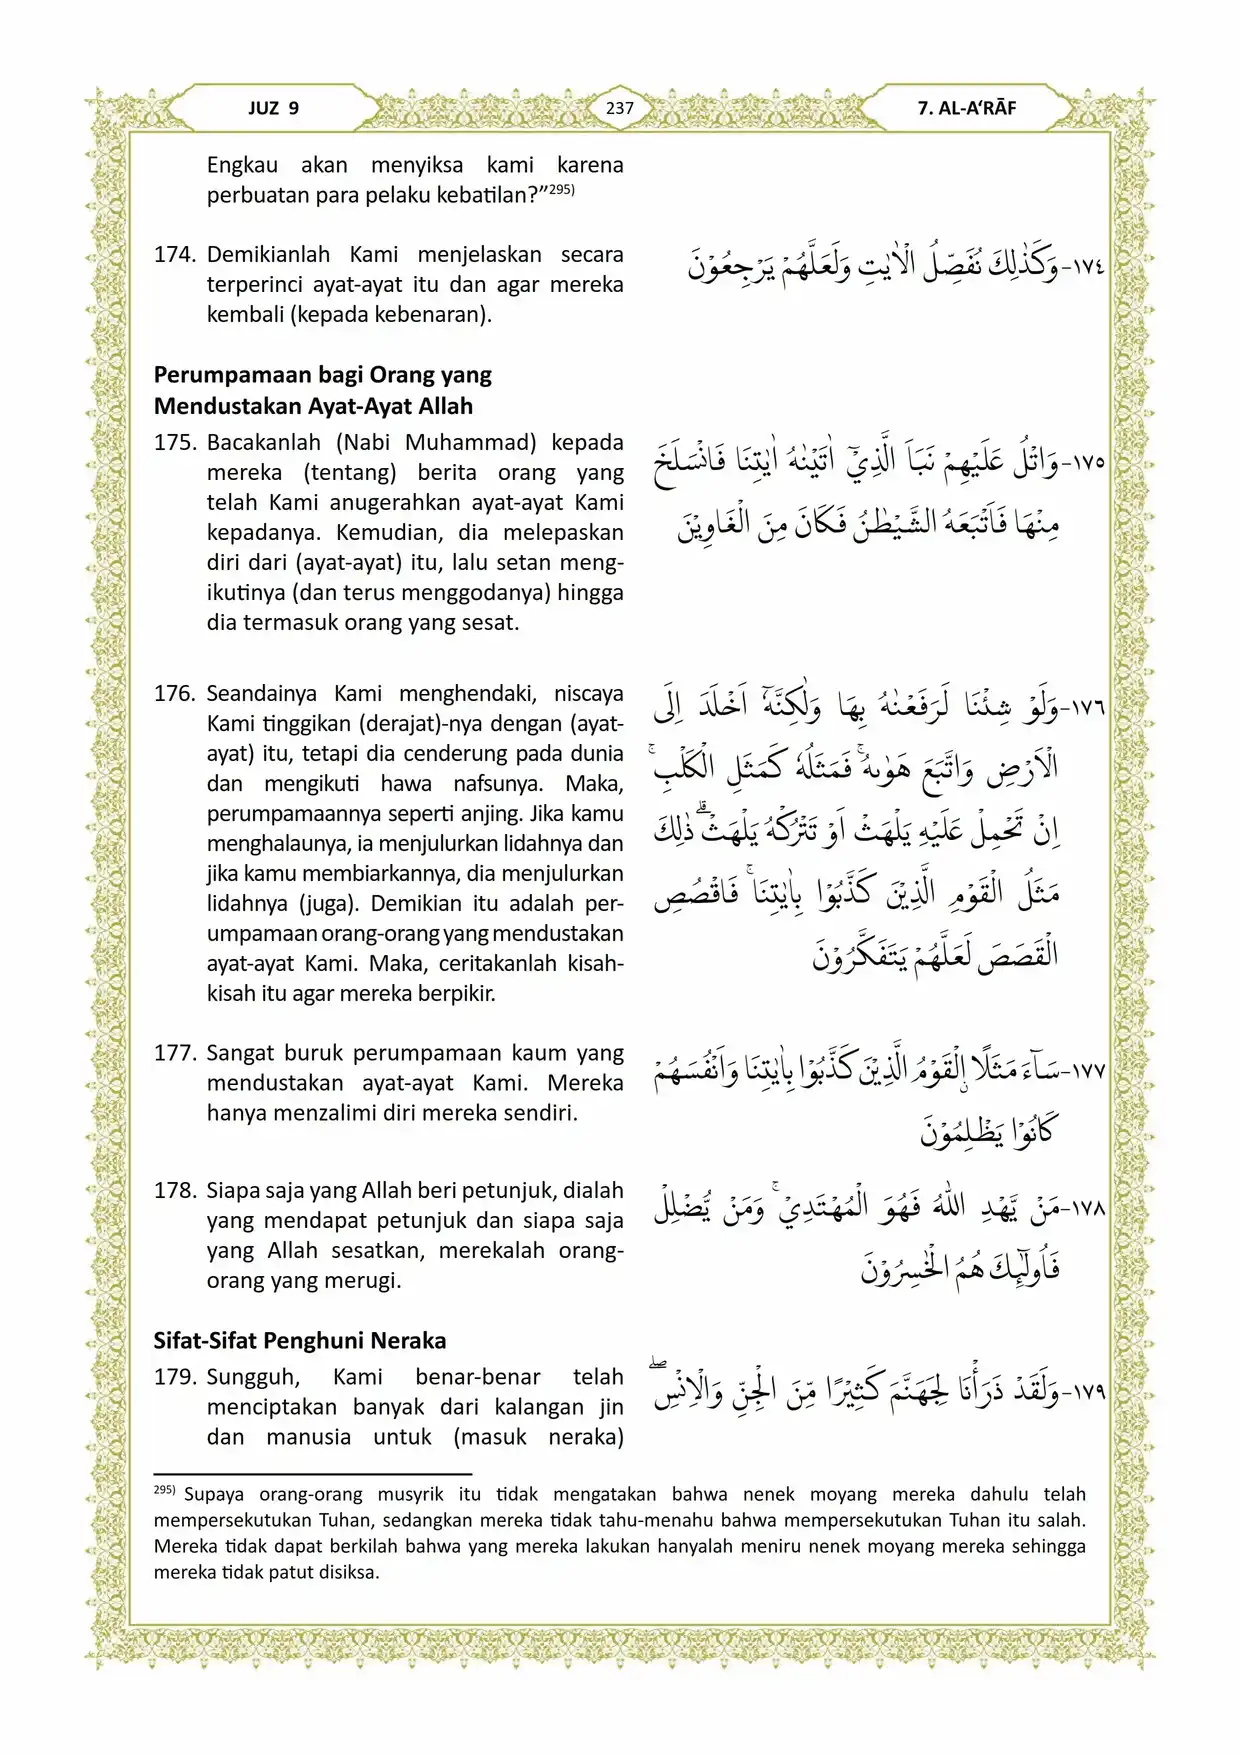 JUZ 9
237
7. AL-A‘RĀF
Engkau akan menyiksa kami karena
perbuatan para pelaku kebatilan?”295)
174. Demikianlah Kami menjelaskan secara
terperinci ayat-ayat itu dan agar mereka
kembali (kepada kebenaran).
١٧٤- وَكَذٰلِكَ نُفَصِّلُ الْاٰيٰتِ وَلَعَلَّهُمْ يَرْجِعُوْنَ
Perumpamaan bagi Orang yang
Mendustakan Ayat-Ayat Allah
175. Bacakanlah (Nabi Muhammad) kepada
mereka (tentang) berita orang yang
telah Kami anugerahkan ayat-ayat Kami
kepadanya. Kemudian, dia melepaskan
diri dari (ayat-ayat) itu, lalu setan meng-
ikutinya (dan terus menggodanya) hingga
dia termasuk orang yang sesat.
١٧٥- وَاتْلُ عَلَيْهِمْ نَبَاَ الَّذِيْٓ اٰتَيْنٰهُ اٰيٰتِنَا فَانْسَلَخَ
مِنْهَا فَاَتْبَعَهُ الشَّيْطٰنُ فَكَانَ مِنَ الْغَاوِيْنَ
176. Seandainya Kami menghendaki, niscaya
Kami tinggikan (derajat)-nya dengan (ayat-
ayat) itu, tetapi dia cenderung pada dunia
dan mengikuti hawa nafsunya. Maka,
perumpamaannya seperti anjing. Jika kamu
menghalaunya, ia menjulurkan lidahnya dan
jika kamu membiarkannya, dia menjulurkan
lidahnya (juga). Demikian itu adalah per-
umpamaan orang-orang yang mendustakan
ayat-ayat Kami. Maka, ceritakanlah kisah-
kisah itu agar mereka berpikir.
١٧٦- وَلَوْ شِئْنَا لَرَفَعْنٰهُ بِهَا وَلٰكِنَّهٗٓ اَخْلَدَ اِلَى
الْاَرْضِ وَاتَّبَعَ هَوٰىهُۚ فَمَثَلُهٗ كَمَثَلِ الْكَلْبِۚ
اِنْ تَحْمِلْ عَلَيْهِ يَلْهَثْ اَوْ تَتْرُكْهُ يَلْهَثْۗ ذٰلِكَ
مَثَلُ الْقَوْمِ الَّذِيْنَ كَذَّبُوْا بِاٰيٰتِنَاۚ فَاقْصُصِ
الْقَصَصَ لَعَلَّهُمْ يَتَفَكَّرُوْنَ
177. Sangat buruk perumpamaan kaum yang
mendustakan ayat-ayat Kami. Mereka
hanya menzalimi diri mereka sendiri.
١٧٧- سَاۤءَ مَثَلًا ۨالْقَوْمُ الَّذِيْنَ كَذَّبُوْا بِاٰيٰتِنَا وَاَنْفُسَهُمْ
كَانُوْا يَظْلِمُوْنَ
178. Siapa saja yang Allah beri petunjuk, dialah
yang mendapat petunjuk dan siapa saja
yang Allah sesatkan, merekalah orang-
orang yang merugi.
١٧٨- مَنْ يَّهْدِ اللّٰهُ فَهُوَ الْمُهْتَدِيْۚ وَمَنْ يُّضْلِلْ
فَاُولٰۤىِٕكَ هُمُ الْخٰسِرُوْنَ
Sifat-Sifat Penghuni Neraka
179. Sungguh, Kami benar-benar telah
menciptakan banyak dari kalangan jin
dan manusia untuk (masuk neraka)
١٧٩- وَلَقَدْ ذَرَأْنَا لِجَهَنَّمَ كَثِيْرًا مِّنَ الْجِنِّ وَالْاِنْسِۖ
295) Supaya orang-orang musyrik itu tidak mengatakan bahwa nenek moyang mereka dahulu telah
mempersekutukan Tuhan, sedangkan mereka tidak tahu-menahu bahwa mempersekutukan Tuhan itu salah.
Mereka tidak dapat berkilah bahwa yang mereka lakukan hanyalah meniru nenek moyang mereka sehingga
mereka tidak patut disiksa.